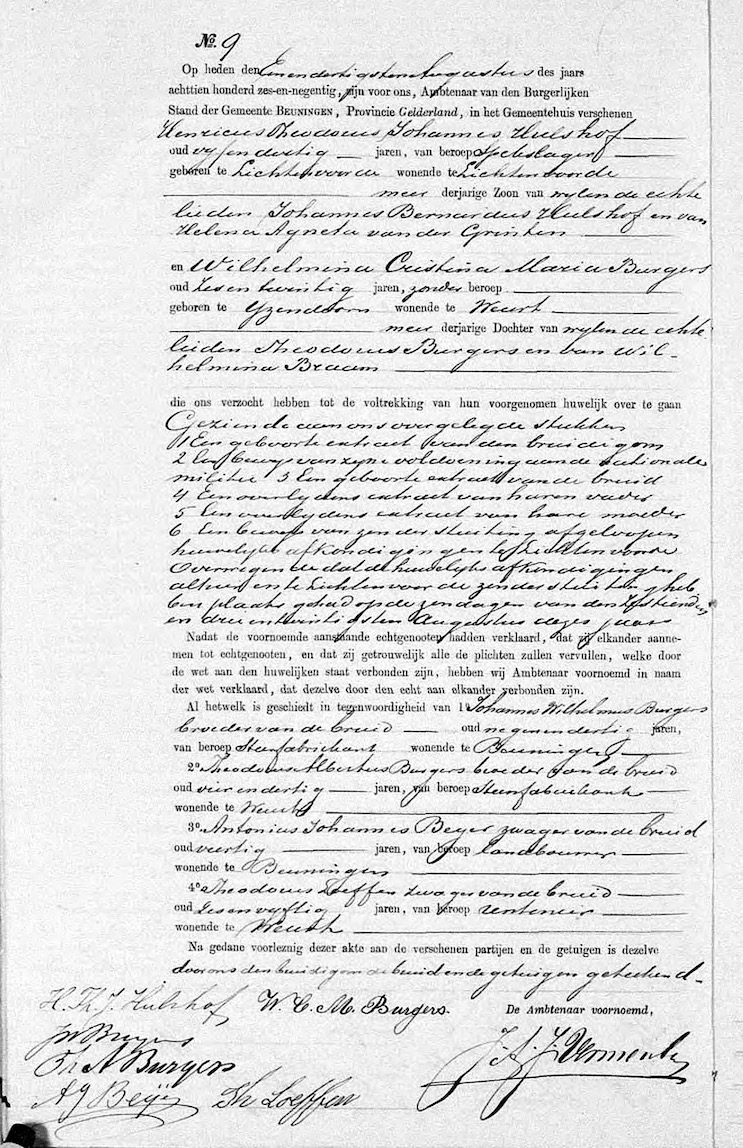 No. 9
Op heden den Eenendertigsten Augustus des jaars
achttien honderd zes-en-negentig, zijn voor ons, Ambtenaar van den Burgerlijken
Stand der Gemeente BEUNINGEN, Provincie Gelderland, in het Gemeentehuis verschenen
Henricus Theodorus Johannes Hulshof
oud vyfendertig jaren, van beroep
geboren te Lichtenvoorde wonende te Lichtenvoorde
meer derjarige Zoon van wylen de echte
lieden Johannes Bernardus Hulshof en van
Helena Agneta van der Grinten
en Wilhelmina Cristina Maria Burgers
oud zesentwintig jaren, zonder beroep
geboren te Yzendoorn wonende te Weurt
meer derjarige Dochter van wylen de echte
lieden Theodorus Burgers en van Wil-
helmina Braam
die ons verzocht hebben tot de voltrekking van hun voorgenomen huwelijk over te gaan
Gezien de aan ons overgelegde stukken
1 Een geboorte extract van den bruidigom
2 Een bewys van zyne voldoening aan de nationale
militie 3 Een geboorte extract van de bruid
4 Een overlydens extract van haren vader
5 Een overlydens extract van hare moeder
6 Een bewys van zonder stuiting afgeloopen
huwelyks afkondigingen te Lichtenvoorde
Overwegende dat de huwelyks afkondigingen
alhier en te Lichtenvoorde zonder stuiting heb
ben plaats gehad op de zondagen van den zestienden
en drieentwintigsten Augustus dezes jaars
Nadat de voornoemde aanstaande echtgenooten hadden verklaard, dat zij elkander aanne-
men tot echtgenooten, en dat zij getrouwelijk alle de plichten zullen vervullen, welke door
de wet aan den huwelijken staat verbonden zijn, hebben wij Ambtenaar voornoemd in naam
der wet verklaard, dat dezelve door den echt aan elkander verbonden zijn.
Al hetwelk is geschiedt in tegenwoordigheid van 1o Johannes Wilhelmus Burgers
broeder van de bruid oud negenendertig jaren,
van beroep Steenfabrikant wonende te Beuningen
2o Theodorus Albertus Burgers broeder van de bruid
oud vierendertig jaren, van beroep steenfabrikant
wonende te Weurt
3o Antonius Johannes Beyer zwager van de bruid
oud veertig jaren, van beroep landbouwer
wonende te Beuningen
4o Theodorus Loeffen zwager van de bruid
oud zesenvyftig jaren, van beroep rentenier
wonende te Weurt
Na gedane voorlezing dezer akte aan de verschenen partijen en de getuigen is dezelve
door ons den bruidigom de bruid en de getuigen geteekend-
H. Th. J. Hulshof W. C. M. Burgers. De Ambtenaar voornoemd,
JW Burgers
Th A Burgers
A J Beijer Th Loeffen